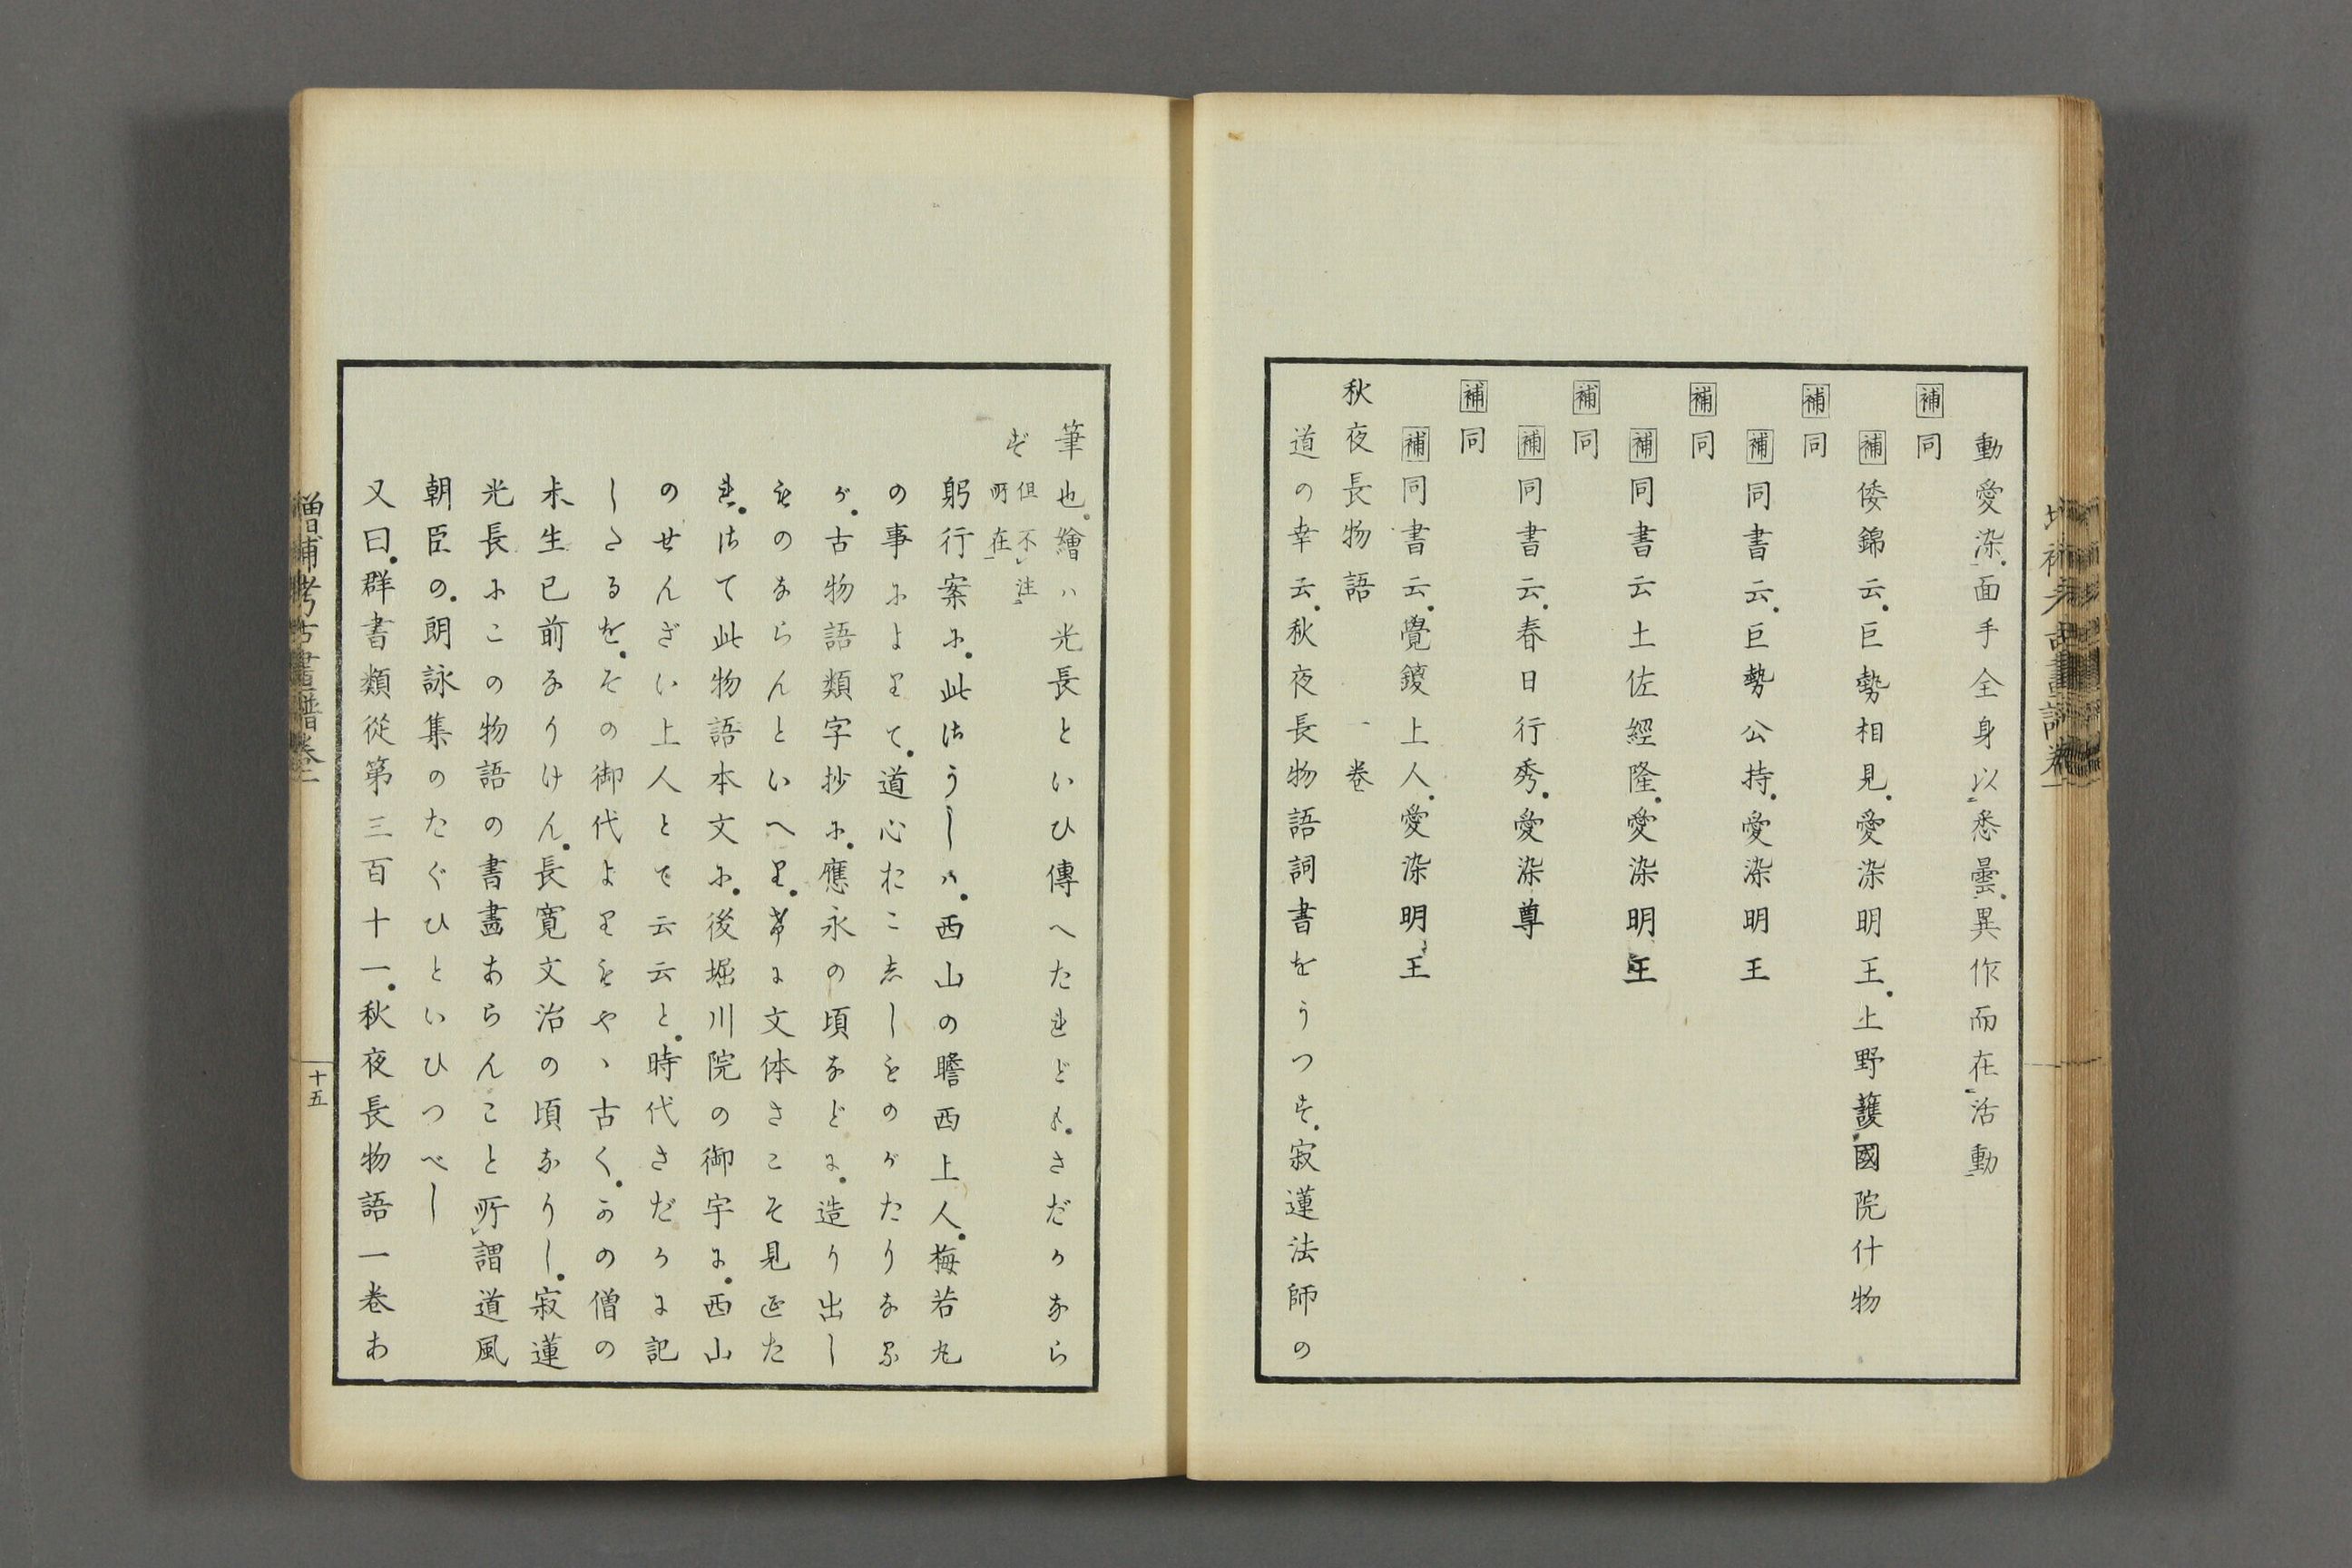 動愛染。面手全身以悉曇。異作而在活動
補同
補倭錦云。巨勢相見。愛染明王。上野護國院什物
補同
補同書云。巨勢公持。愛染明王
補同
補同書云土佐經隆。愛染明王
補同
補同書云。春日行秀。愛染尊
補同
補同書云。覺鑁上人。愛染明王
秋夜長物語 一卷
道の幸云。秋夜長物語詞書をうつす。寂蓮法師の
筆也。繪ハ光長といひ傳へたれども。さだかなら
ず 但不注
所在
躬行案に。此はうしハ。西山の瞻西上人。梅若丸
の事によりて。道心おこしゝものがたりなる
が。古物語類字抄に。應永の頃などに。造り出し
ものならんといへり。業に文体さこそ見江た
れ。はて此物語本文に。後堀川院の御宇に。西山
のせんざい上人とて云云と。時代さだかに記
したるを。その御代よりもやゝ古く。かの僧の
未生已前なりけん。長寛文治の頃なりし。寂蓮
光長にこの物語の書畫あらんこと所謂道風
朝臣の。朗詠集のたぐひといひつべし
又曰。群書類從第三百十一。秋夜長物語一卷あ
增補考古畫譜卷二
十五